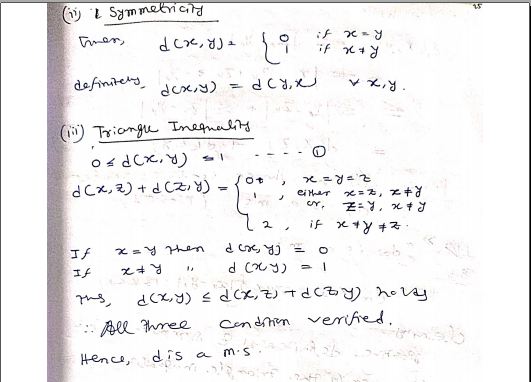 25
(ii) Symmetricity
Given, d(x,y) = { 0 if x = y
1 if x ≠ y
definitely d(x,y) = d(y,x) ∀ x,y.
(iii) Triangle Inequality
0 ≤ d(x,y) ≤ 1 ---- ①
d(x,z) + d(z,y) = { 0 , x = y = z
1 , either x = z, x ≠ y
or, z = y, x ≠ y
2 , if x ≠ y ≠ z.
If x = y then d(x,y) = 0
If x ≠ y " d(x,y) = 1
Thus, d(x,y) ≤ d(x,z) + d(z,y) holds
∴ All three condition verified.
Hence, d is a m.s.